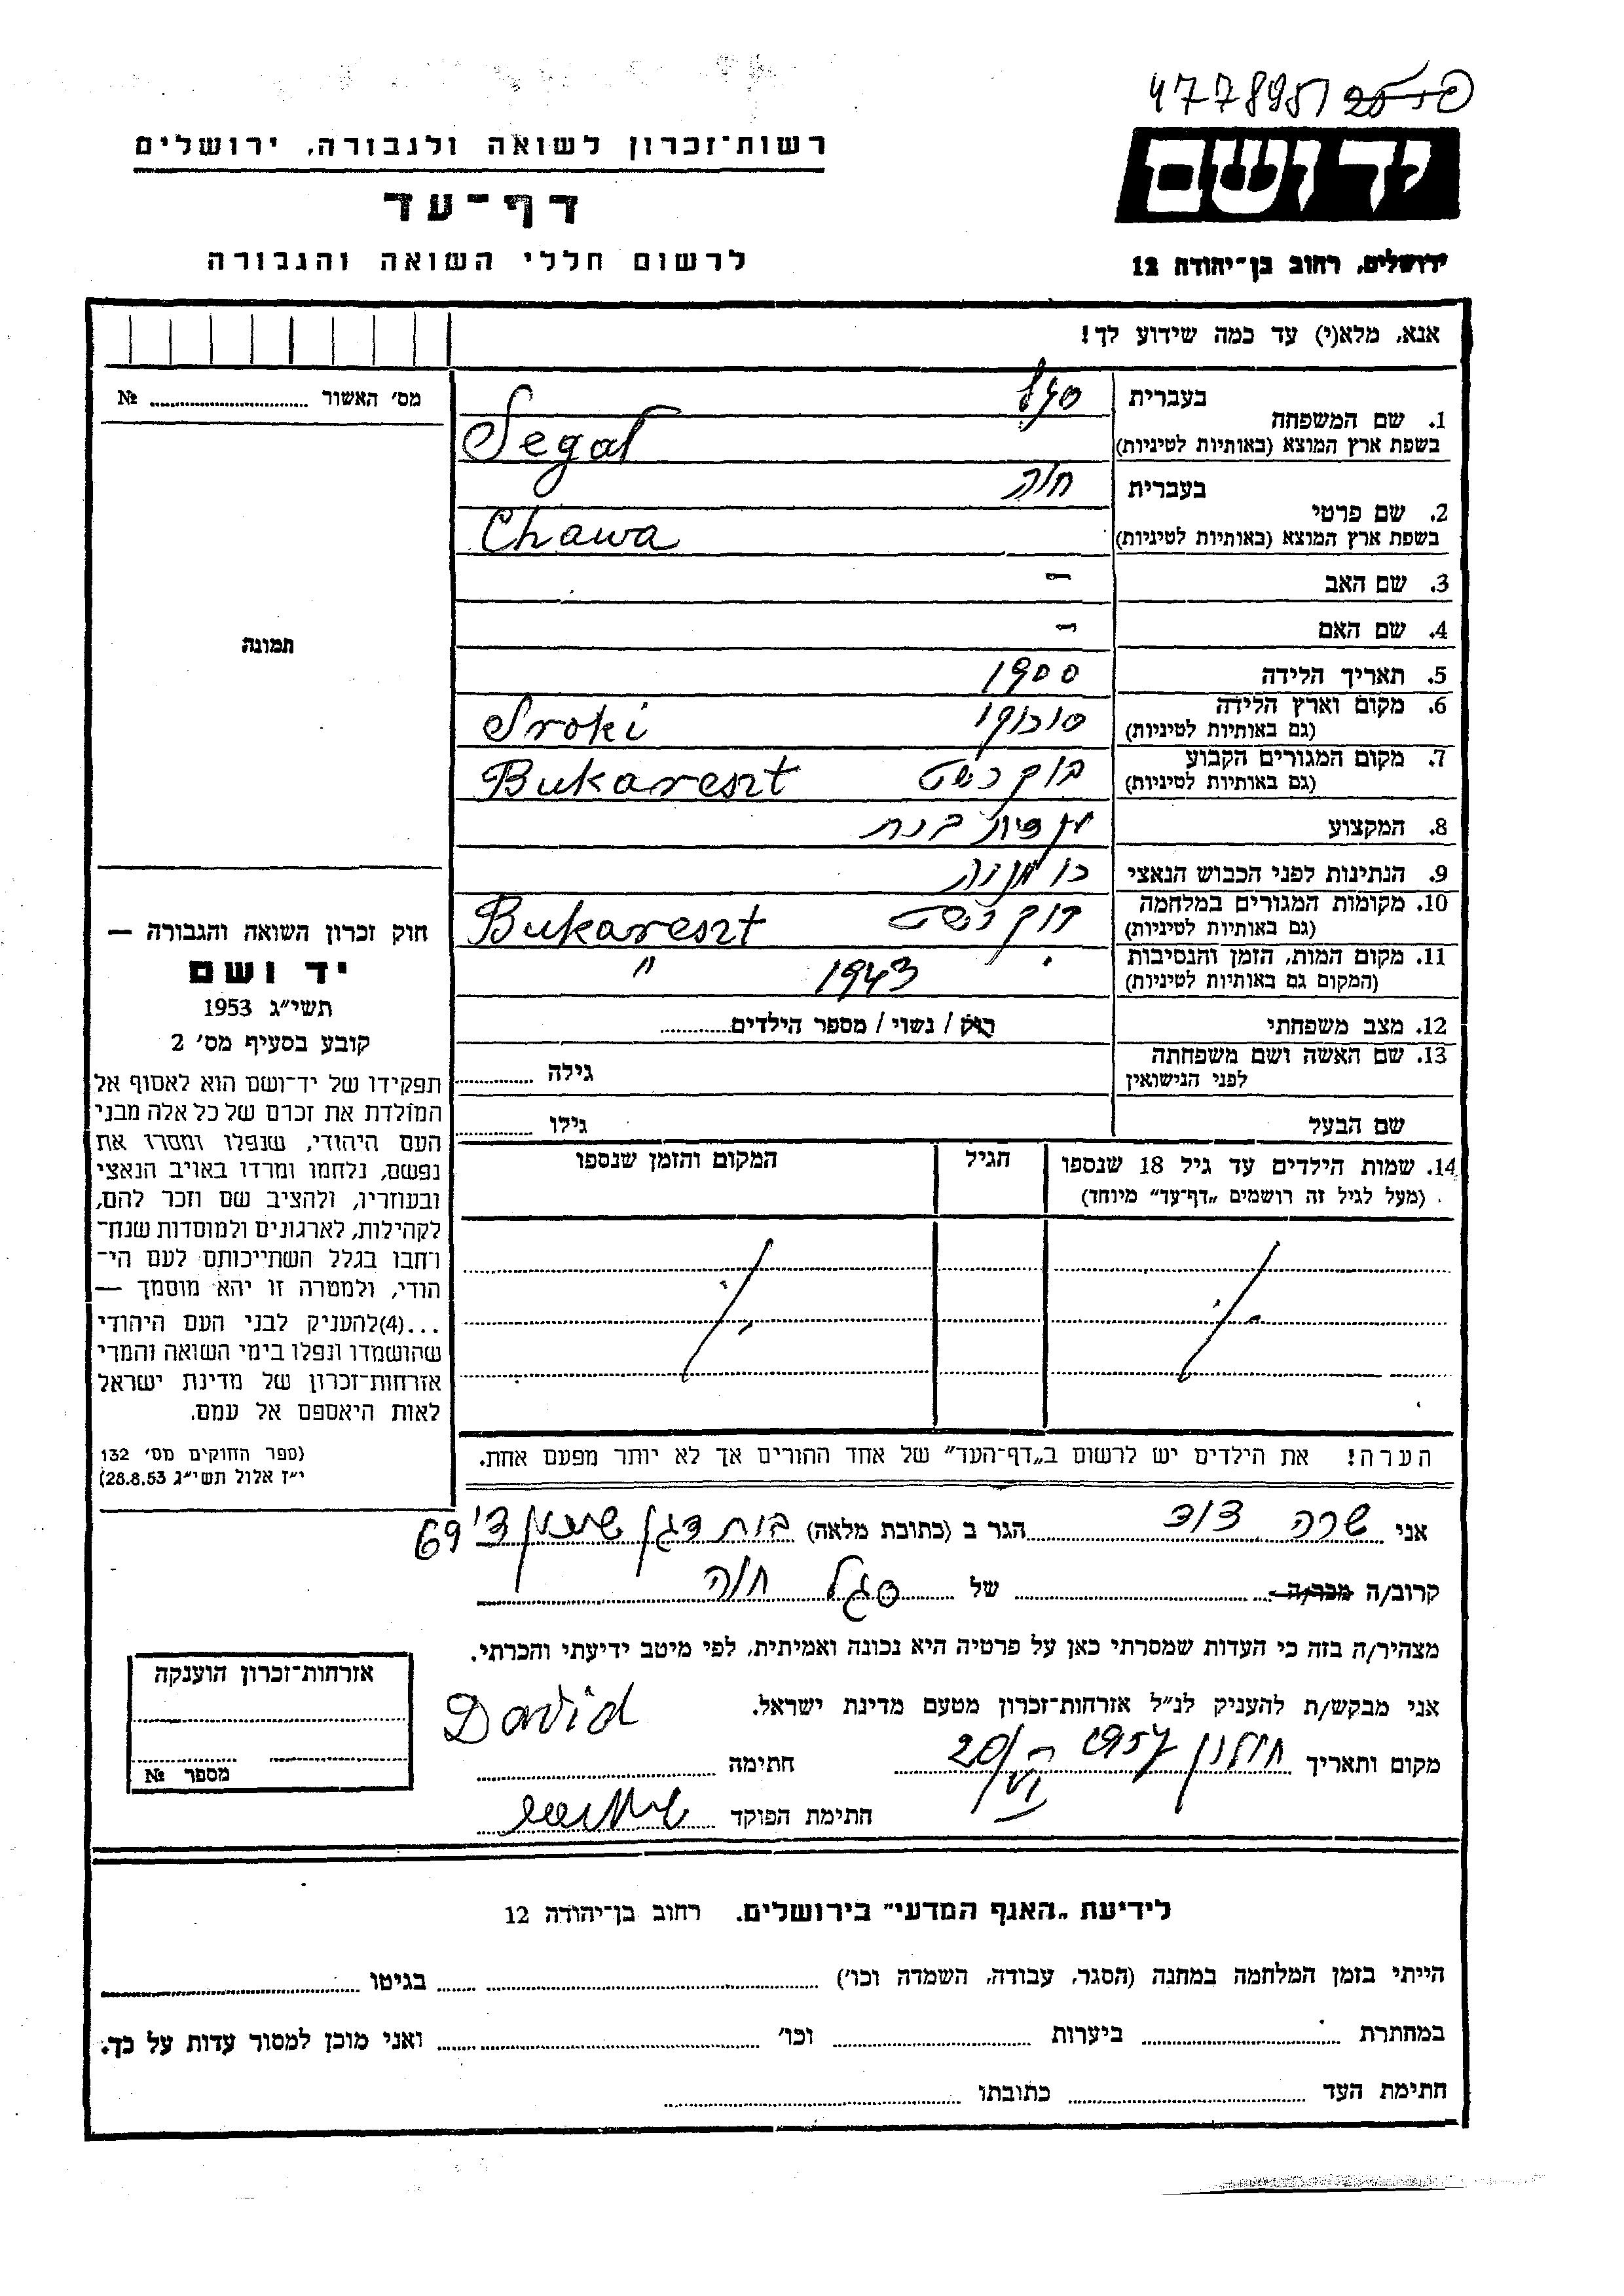 477895/
יד ושם
רשות-זכרון לשואה ולגבורה, ירושלים
דף-עד
לרשום חללי השואה והגבורה
ירושלים, רחוב בן-יהודה 12
אנא, מלא(י) עד כמה שידוע לך!
מס' האשור № ........
תמונה
1. שם המשפחה בעברית סגל
בשפת ארץ המוצא (באותיות לטיניות) Segal
2. שם פרטי בעברית חוה
בשפת ארץ המוצא (באותיות לטיניות) Chawa
3. שם האב —
4. שם האם —
5. תאריך הלידה 1900
6. מקום וארץ הלידה סורוקי Sroki
(גם באותיות לטיניות)
7. מקום המגורים הקבוע בוקרשט Bukareszt
(גם באותיות לטיניות)
8. המקצוע
9. הנתינות לפני הכבוש הנאצי רומניה
10. מקומות המגורים במלחמה בוקרשט Bukareszt
(גם באותיות לטיניות)
11. מקום המות, הזמן והנסיבות 1943 "
(המקום גם באותיות לטיניות)
12. מצב משפחתי רוק / נשוי / מספר הילדים........
13. שם האשה ושם משפחתה גילה ........
לפני הנישואין
שם הבעל גילו ........
14. שמות הילדים עד גיל 18 שנספו הגיל המקום והזמן שנספו
(מעל לגיל זה רושמים „דף-עד" מיוחד)
הערה! את הילדים יש לרשום ב„דף-העד" של אחד ההורים אך לא יותר מפעם אחת.
חוק זכרון השואה והגבורה —
יד ושם
תשי"ג 1953
קובע בסעיף מס' 2
תפקידו של יד-ושם הוא לאסוף אל
המולדת את זכרם של כל אלה מבני
העם היהודי, שנפלו ומסרו את
נפשם, נלחמו ומרדו באויב הנאצי
ובעוזריו, ולהציב שם וזכר להם,
לקהילות, לארגונים ולמוסדות שנח-
רחבו בגלל השתייכותם לעם הי-
הודי, ולמטרה זו יהא מוסמך —
...(4)להעניק לבני העם היהודי
שהושמדו ונפלו בימי השואה והמרי
אזרחות-זכרון של מדינת ישראל
לאות היאספם אל עמם.
(ספר החוקים מס' 132
י"ז אלול תשי"ג 28.8.53)
אני שרה דוד הגר ב (כתובת מלאה) בית דגן שיכון ד' 69
קרוב/ה מכר/ה של סגל חוה
מצהיר/ה בזה כי העדות שמסרתי כאן על פרטיה היא נכונה ואמיתית, לפי מיטב ידיעתי והכרתי.
אני מבקש/ת להעניק לנ"ל אזרחות-זכרון מטעם מדינת ישראל.
מקום ותאריך חולון 1957 20/VI חתימה David
חתימת הפוקד
אזרחות-זכרון הוענקה
מספר №
לידיעת „האגף המדעי" בירושלים. רחוב בן-יהודה 12
הייתי בזמן המלחמה במחנה (הסגר, עבודה, השמדה וכו') ........ בגיטו ........
במחתרת ........ ביערות ........ וכו' ........ ואני מוכן למסור עדות על כך.
חתימת העד ........ כתובתו ........